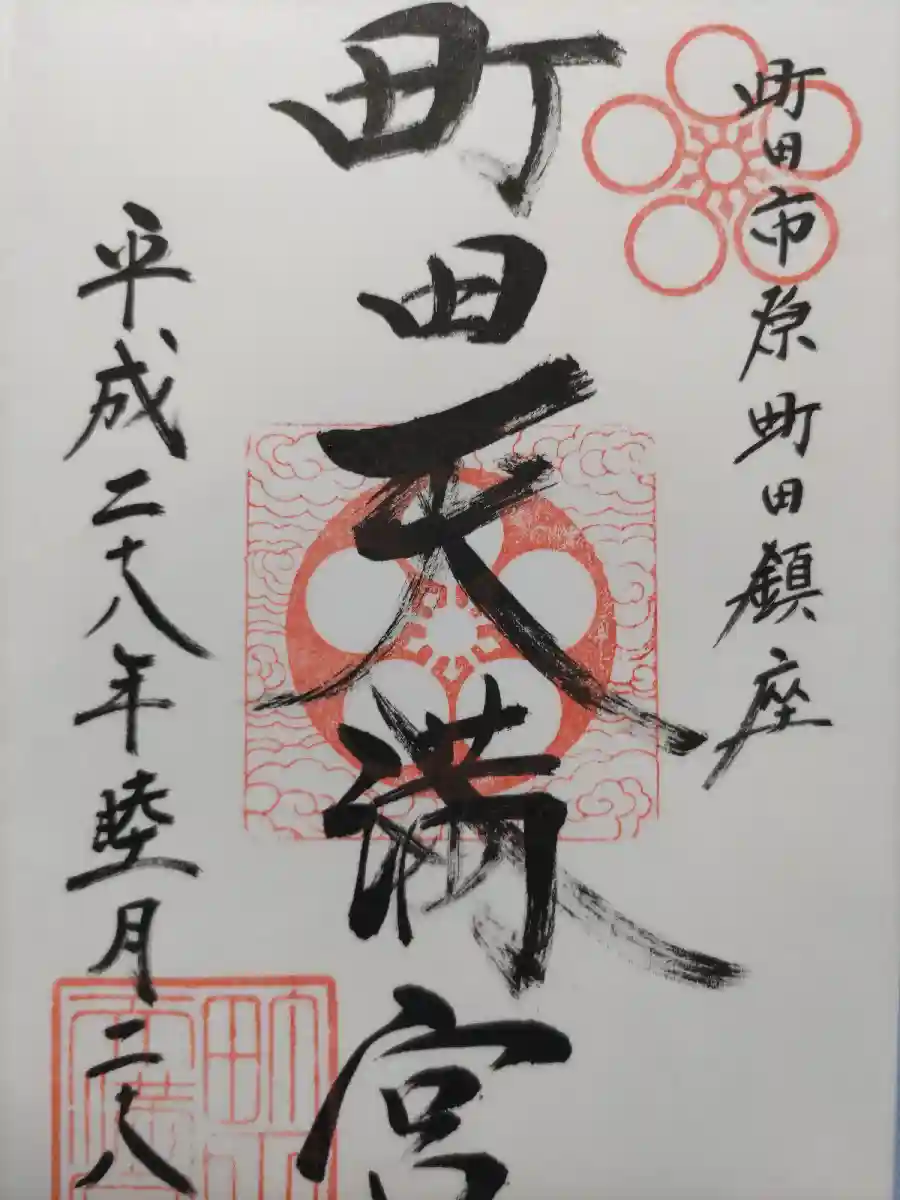 町田市原町田鎮座
町田天満宮
平成二十八年睦月二十八